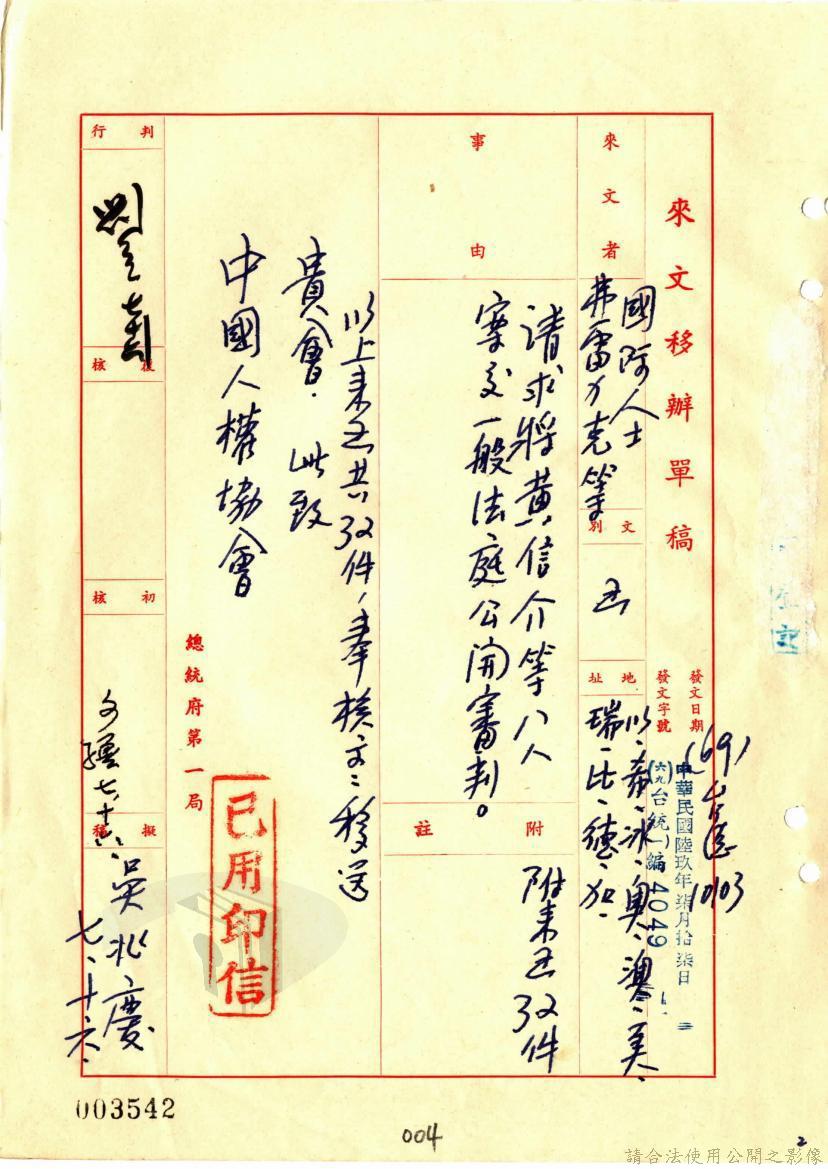 來文移辦單稿
發文日期
中華民國陸玖年柒月拾柒日
發文字號
(六九)台統(一)編 4049
(69)
1003
來文者
國際人士
弗雷力克等
文別
函
地址
以、希、冰、奧、澳、美、
瑞、比、德、加、
事由
請求將黃信介等八人
案交一般法庭公開審判。
附註
附來函32件
以上來函共32件,奉核交、移送
貴會. 此致
中國人權協會
總統府第一局
已用印信
判行
復核
初核
擬稿
七、十六、
吳兆慶
七、十六、
003542
004
2
請合法使用公開之影像